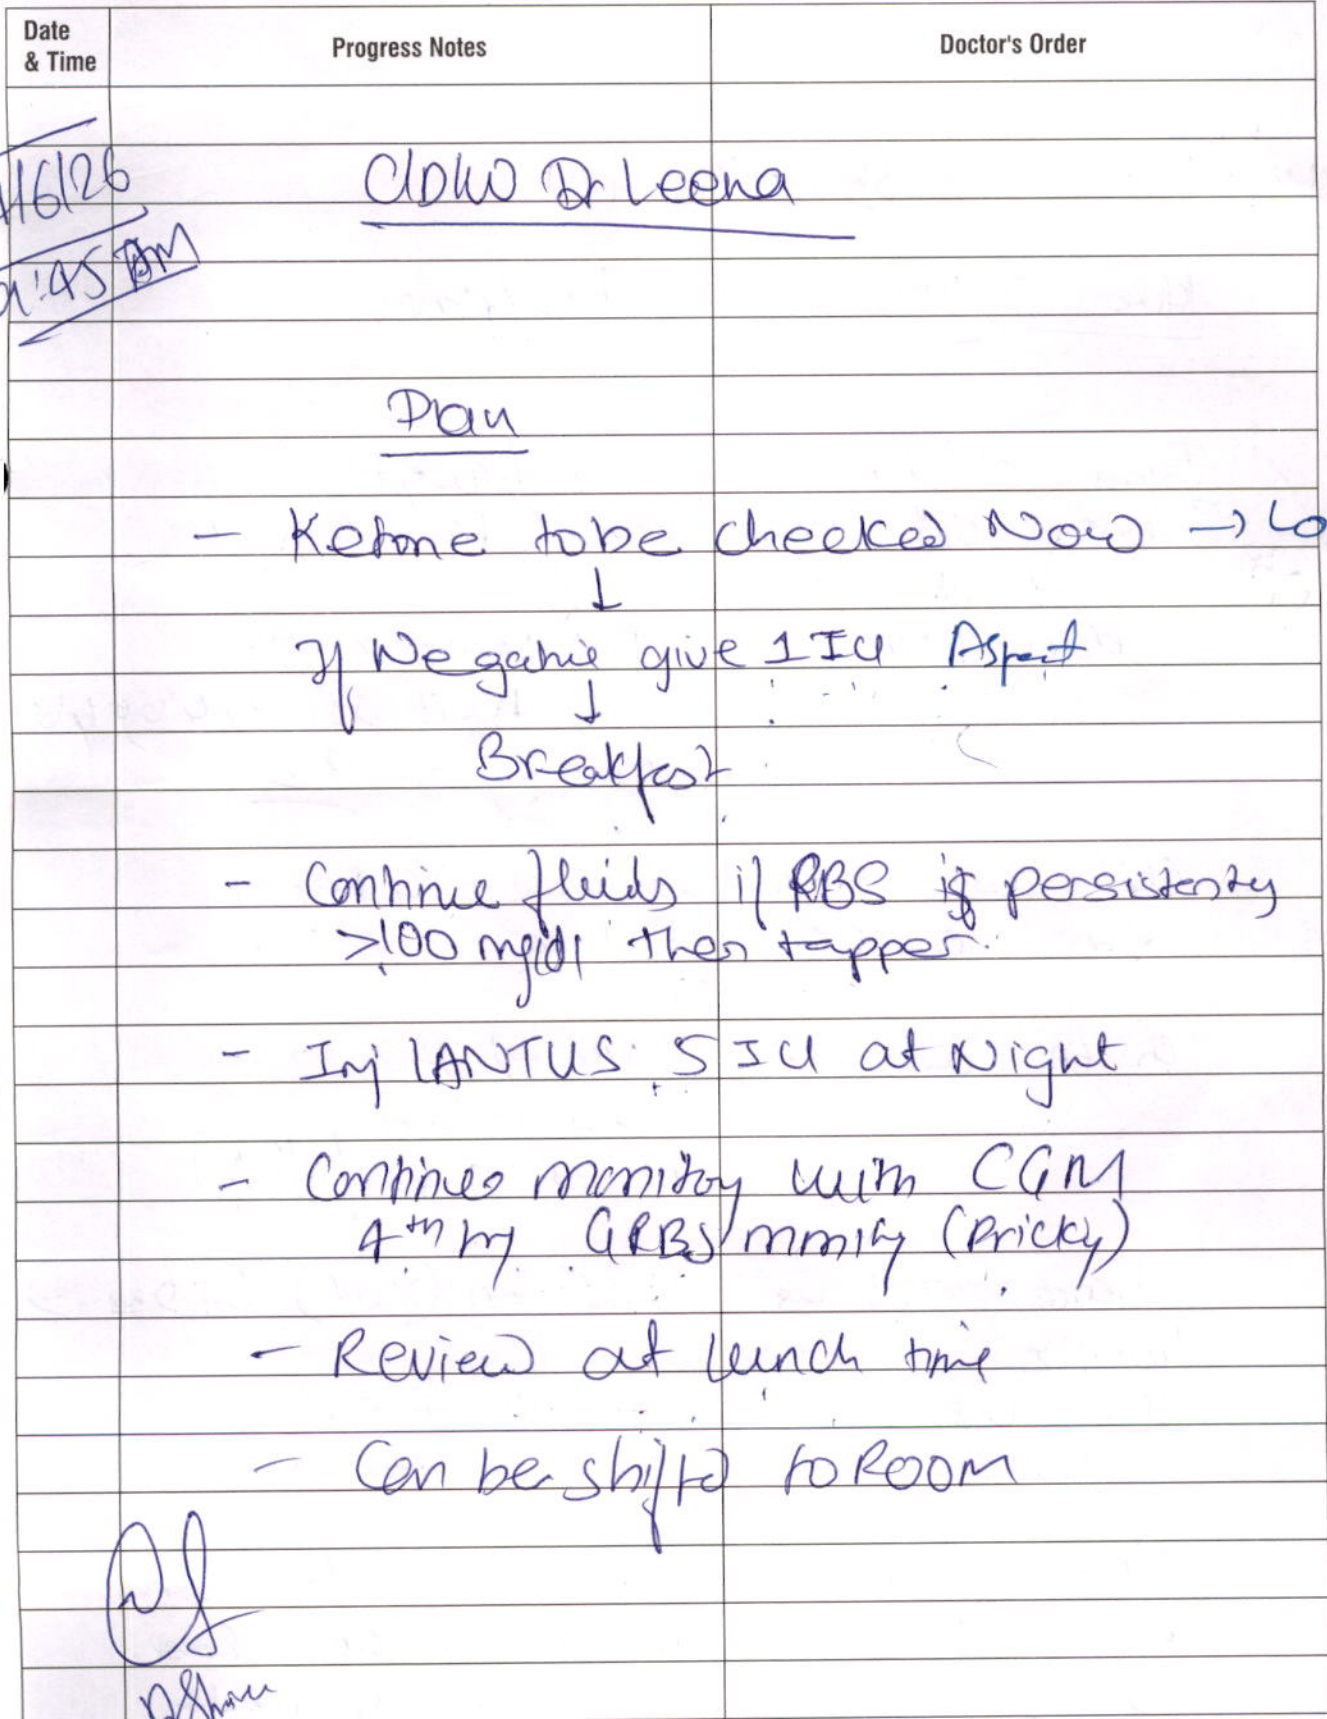 Date
& Time
Progress Notes
Doctor's Order
/6/26
:45 AM
Dr Leena
Plan
- Ketone to be checked Now →
↓
If Negative give 1 IU Aspart
↓
Breakfast
- Continue fluids if RBS is persistenty
>100 mg/dl then tapper.
- Inj LANTUS 5 IU at Night
- Continue monitoy with CGM
4th hry GRBS (Pricky)
- Review at lunch time
- Can be shifted to ROOM